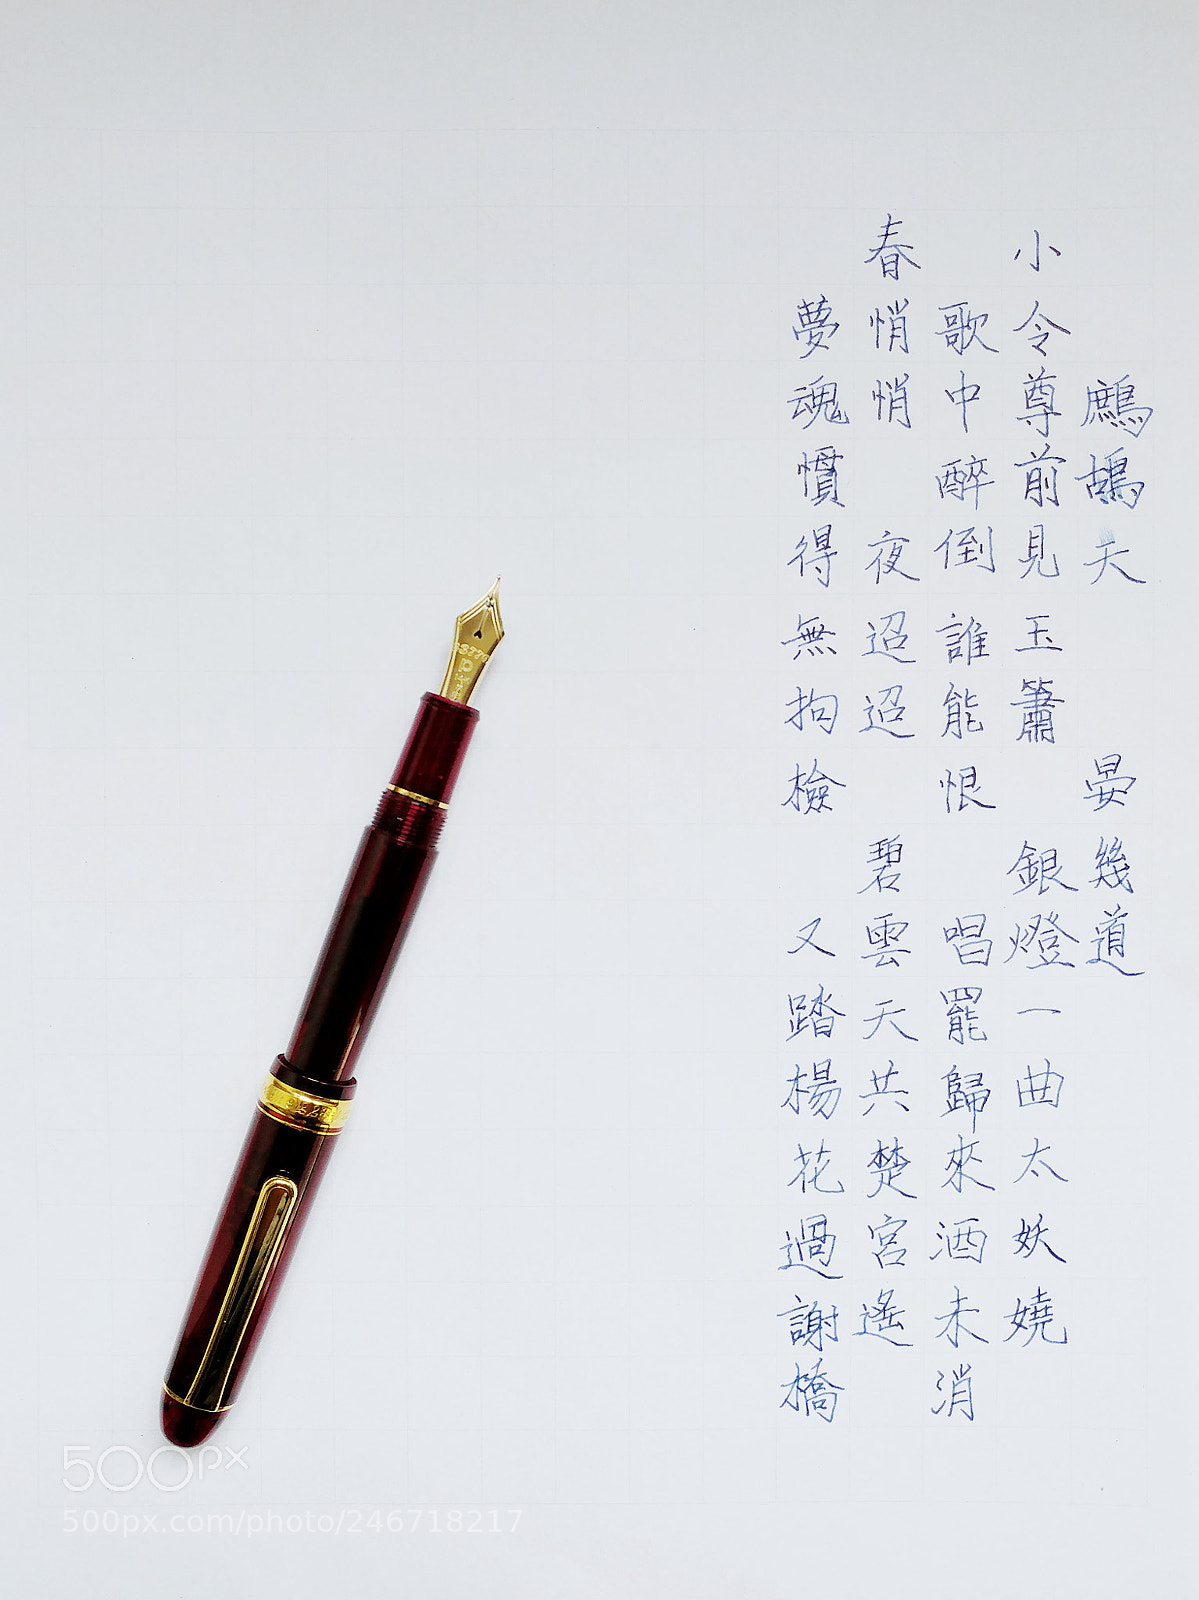 鷓鴣天 晏幾道
小令尊前見玉簫 銀燈一曲太妖嬈
歌中醉倒誰能恨 唱罷歸來酒未消
春悄悄 夜迢迢 碧雲天共楚宮遙
夢魂慣得無拘檢 又踏楊花過謝橋
500px
500px.com/photo/246718217